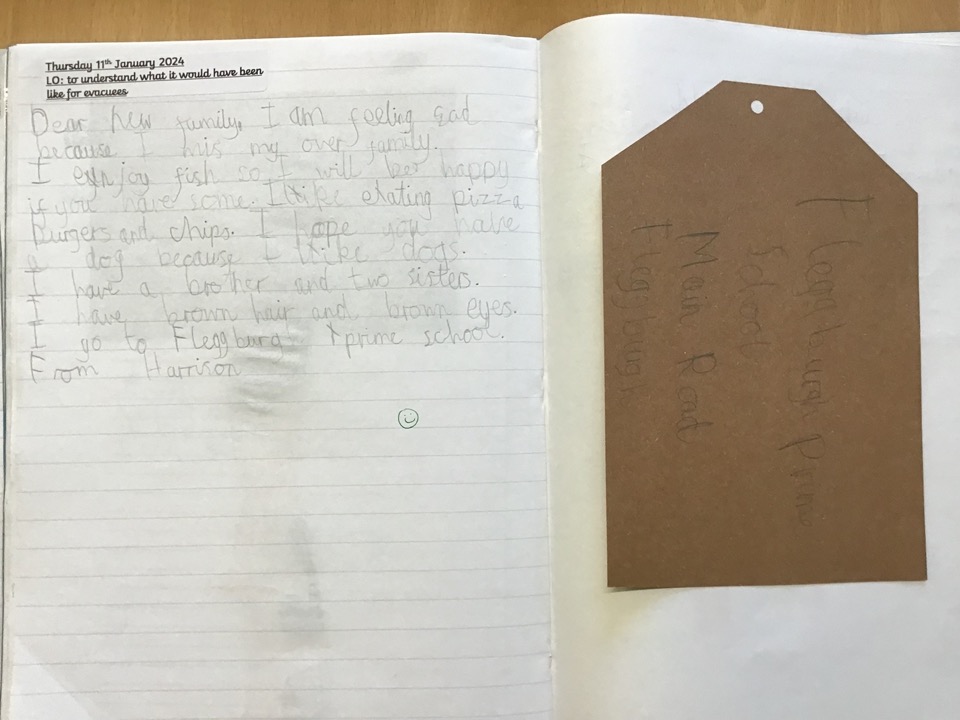 Thursday 11th January 2024
LO: to understand what it would have been
like for evacuees
Dear new family, I am feeling sad
because I mis my over family.
I enjoy fish so I will be happy
if you have some. I like eating pizza
burgers and chips. I hope you have
a dog because I like dogs.
I have a brother and two sisters.
I have brown hair and brown eyes.
I go to Fleggburgh prime school.
From Harrison
Fleggburgh Prime
School
Main Road
Fleggburgh